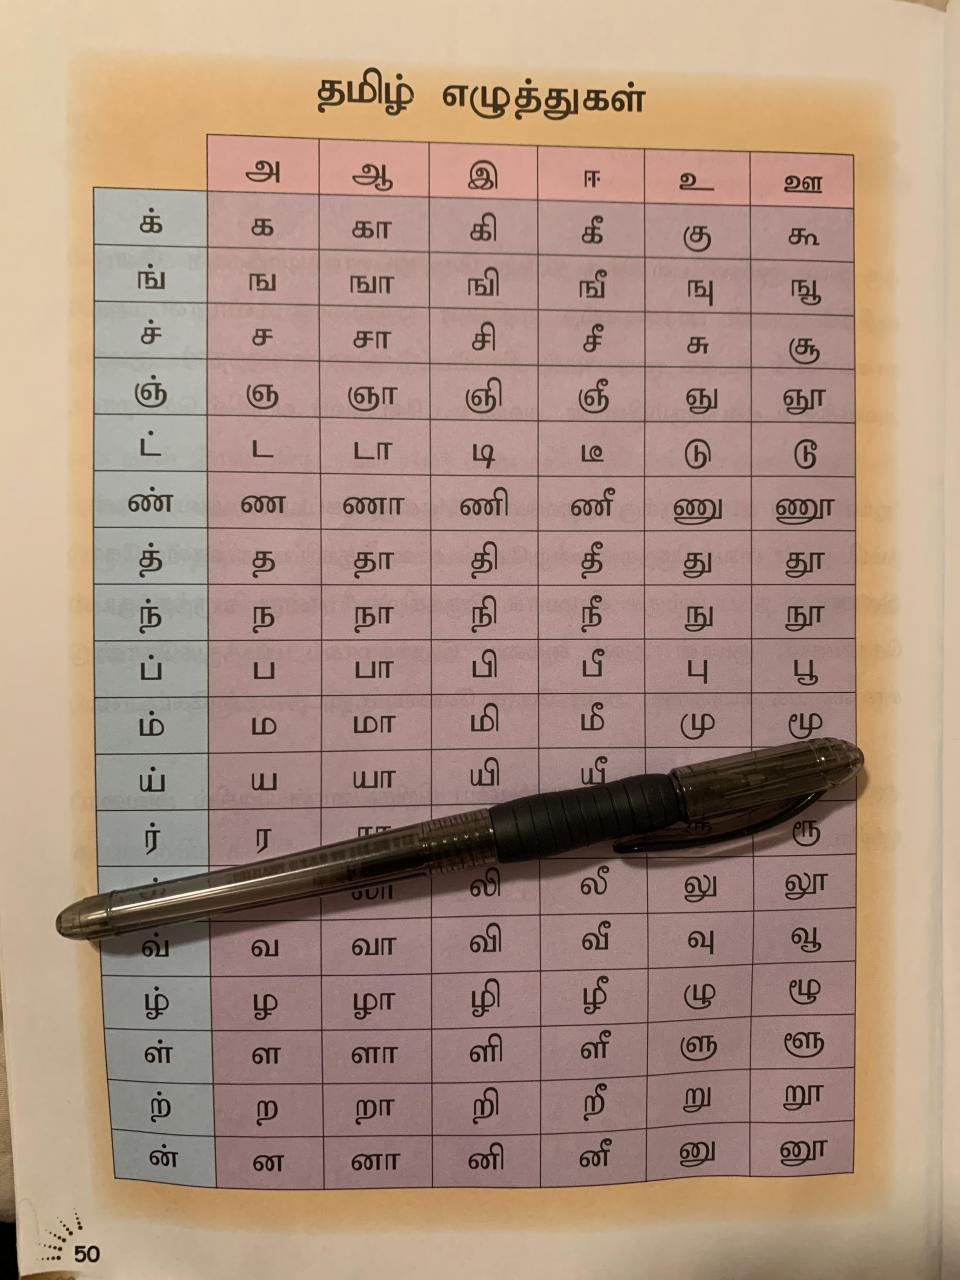 தமிழ் எழுத்துகள்
அ ஆ இ ஈ உ ஊ
க் க கா கி கீ கு கூ
ங் ங ஙா ஙி ஙீ ஙு ஙூ
ச் ச சா சி சீ சு சூ
ஞ் ஞ ஞா ஞி ஞீ ஞு ஞூ
ட் ட டா டி டீ டு டூ
ண் ண ணா ணி ணீ ணு ணூ
த் த தா தி தீ து தூ
ந் ந நா நி நீ நு நூ
ப் ப பா பி பீ பு பூ
ம் ம மா மி மீ மு மூ
ய் ய யா யி யீ
ர் ர ரூ
லா லி லீ லு லூ
வ் வ வா வி வீ வு வூ
ழ் ழ ழா ழி ழீ ழு ழூ
ள் ள ளா ளி ளீ ளு ளூ
ற் ற றா றி றீ று றூ
ன் ன னா னி னீ னு னூ
50